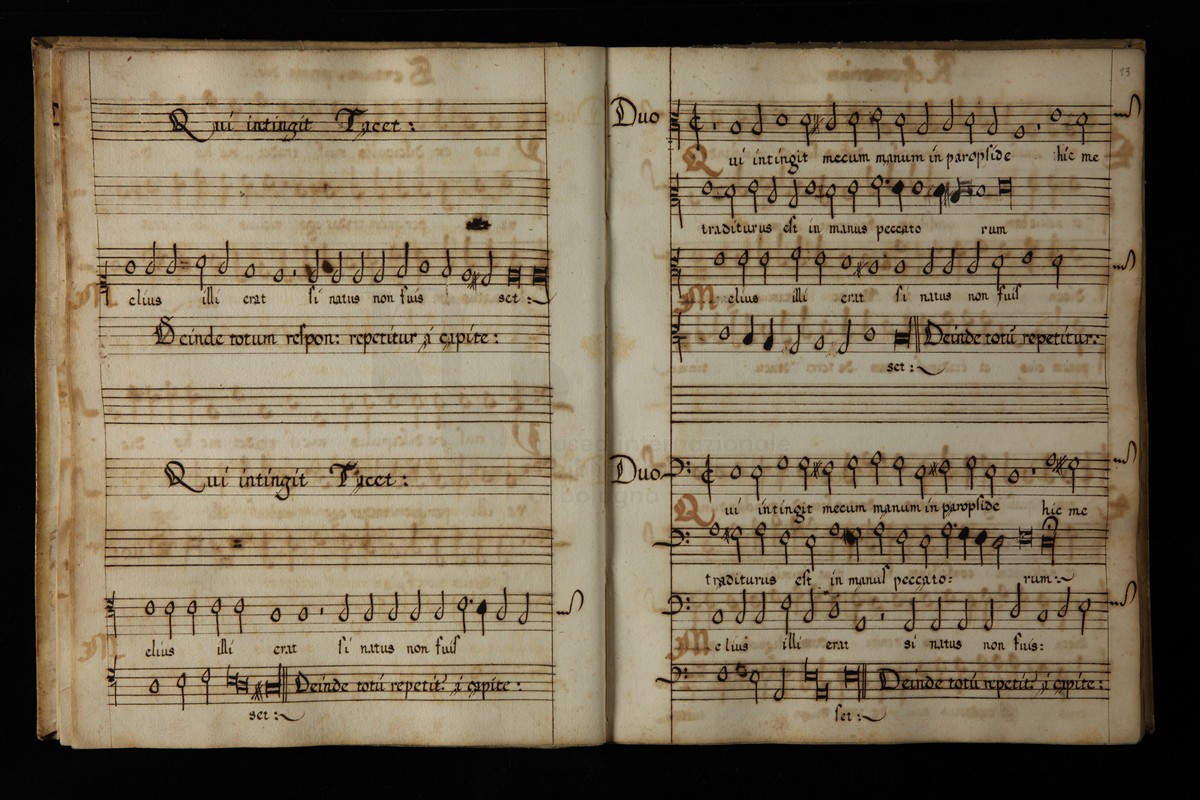 Qui intingit Tacet:
elius illi erat si natus non fuis set:
Deinde totum respon: repetitur á capite:
Qui intingit Tacet:
Melius illi erat si natus non fuis
Deinde totú repetit: á capite:
set:
13
Duo
Qui intingit mecum manum in paropside hic me
traditurus est in manus peccato rum
Melius illi erat si natus non fuis
Deinde totú repetitur:
set:
Duo
Qui intingit mecum manum in paropside hic me
traditurus est in manus peccato: rum:
Melius illi erat si natus non fuis:
Deinde totú repetit: á capite:
set: